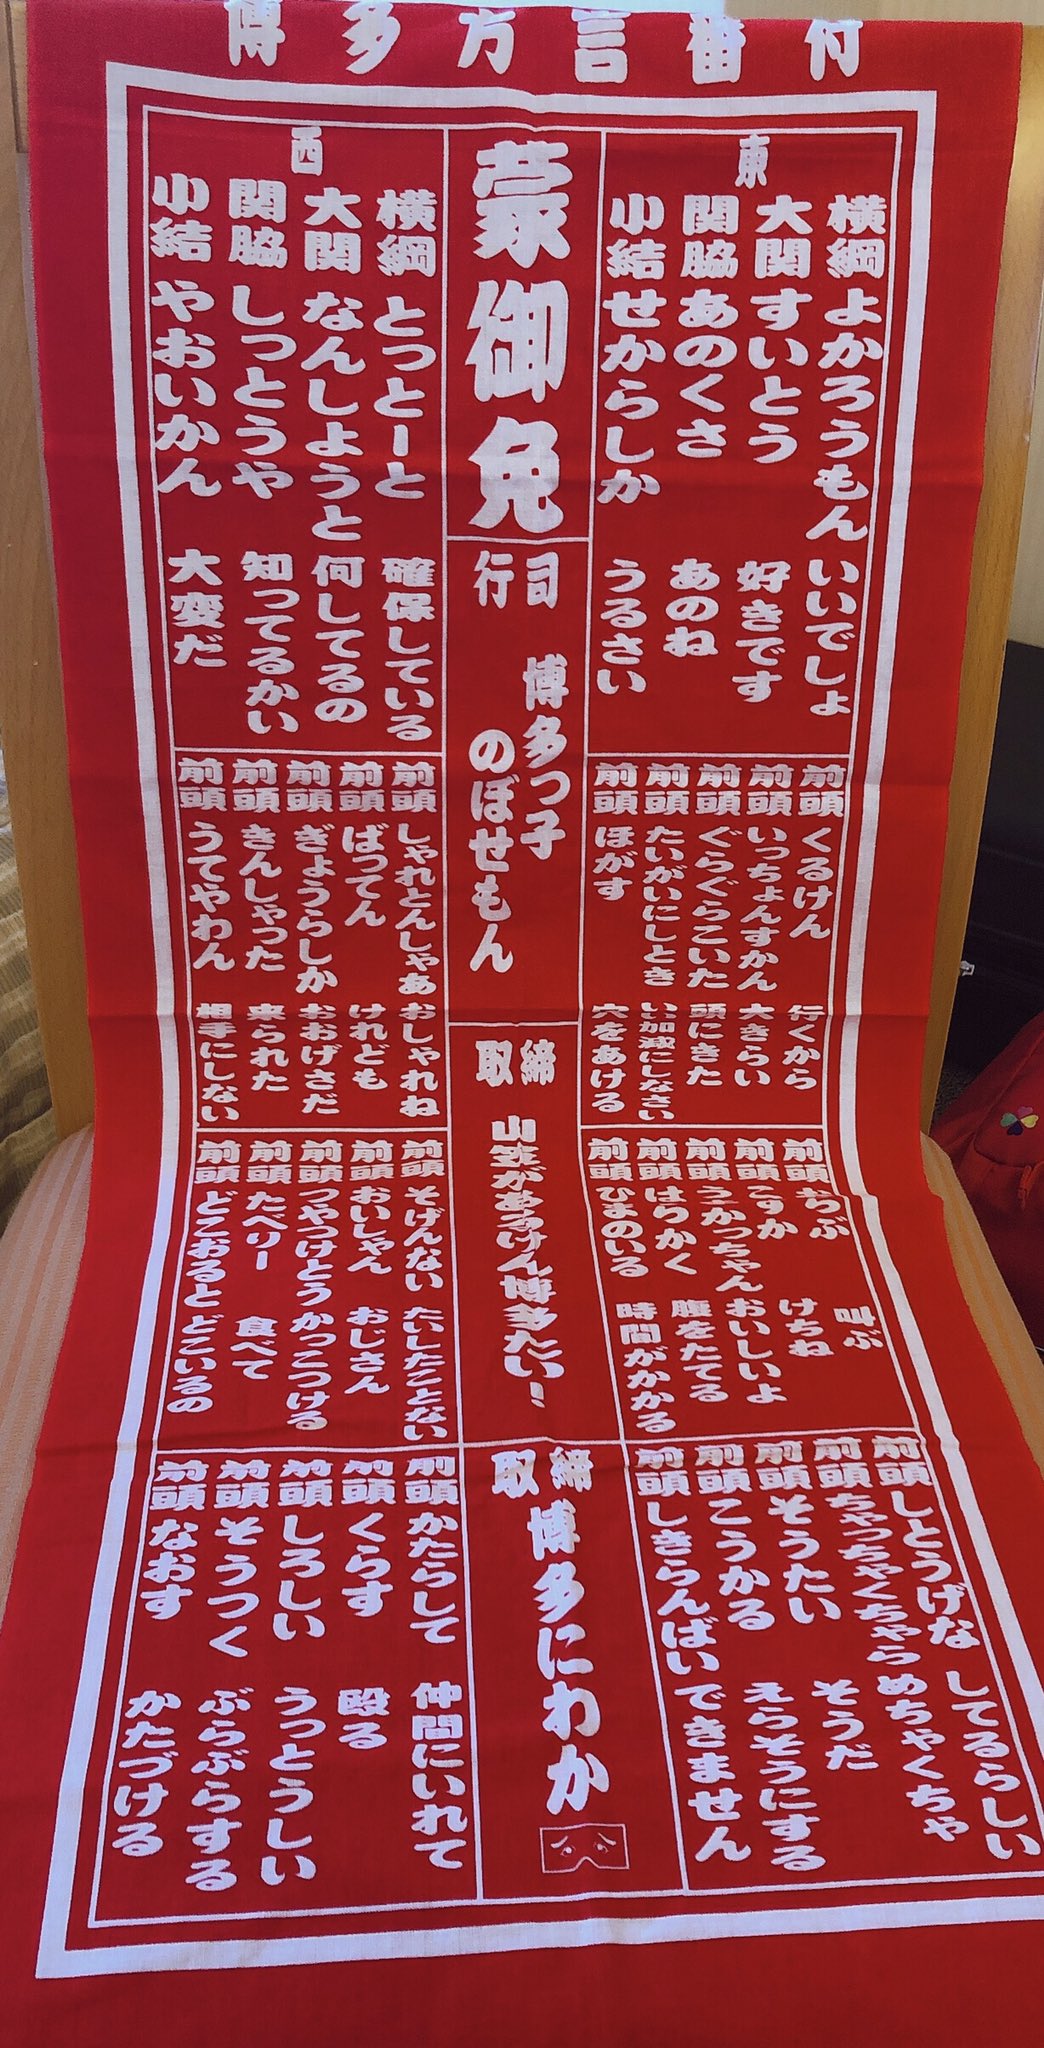 博多方言番付
東
横綱 よかろうもん いいでしょ
大関 すいとう 好きです
関脇 あのくさ あのね
小結 せからしか うるさい
前頭 くるけん 行くから
前頭 いっちょんすかん 大きらい
前頭 ぐらぐらこいた 頭にきた
前頭 たいがいにしとき いい加減にしなさい
前頭 ほがす 穴をあける
前頭 おらぶ 叫ぶ
前頭 こすか けちね
前頭 うかっちゃん おいしいよ
前頭 はらかく 腹をたてる
前頭 ひまのいる 時間がかかる
前頭 しとうげな してるらしい
前頭 ちゃっちゃくちゃら めちゃくちゃ
前頭 そうたい そうだ
前頭 こうかる えらそうにする
前頭 しきらんばい できません
蒙御免
行司
博多っ子
のぼせもん
取締
山笠があるけん博多たい！
取締
博多にわか
西
横綱 とっとーと 確保している
大関 なんしようと 何してるの
関脇 しっとうや 知ってるかい
小結 やおいかん 大変だ
前頭 しゃれとんしゃあ おしゃれね
前頭 ばってん けれども
前頭 ぎょうらしか おおげさだ
前頭 きんしゃった 来られた
前頭 うてやわん 相手にしない
前頭 そげんない たいしたことない
前頭 おいしゃん おじさん
前頭 つやつけとう かっこつける
前頭 たべりー 食べて
前頭 どこおると どこいるの
前頭 かたらして 仲間にいれて
前頭 くらす 殴る
前頭 しろしい うっとうしい
前頭 そうつく ぶらぶらする
前頭 なおす かたづける